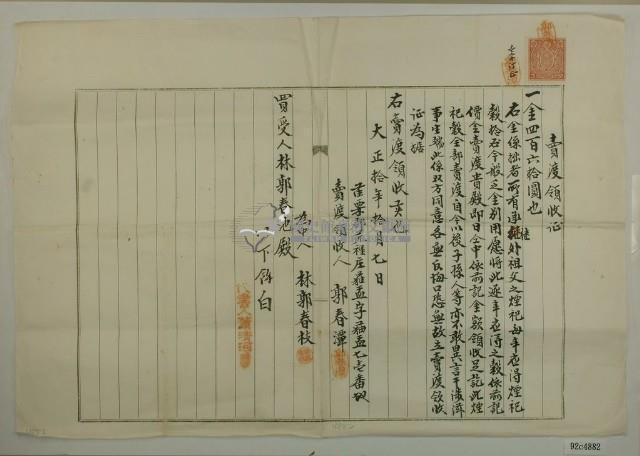 賣渡領收証
一金四百六拾圓也
右金係拙者所有進 外祖父之煙祀每年應得煙祀
穀拾石今般乏金別用應將此逐年應得之穀係前記
價金賣渡貴殿即日仝中依前記金額領收足訖此煙
祀穀全部賣渡自今以後子孫人等亦不敢異言干瀆滋
事生端此係双方同意各無反悔口恐無故立賣渡領收
証為據
右賣渡領收實也
大正拾年拾月七日
苗栗 庄 字 七壱番地
賣渡領收人 郭春
為中人 林郭春枝
買受人林郭春池殿
下餘白
代書人
92c4882